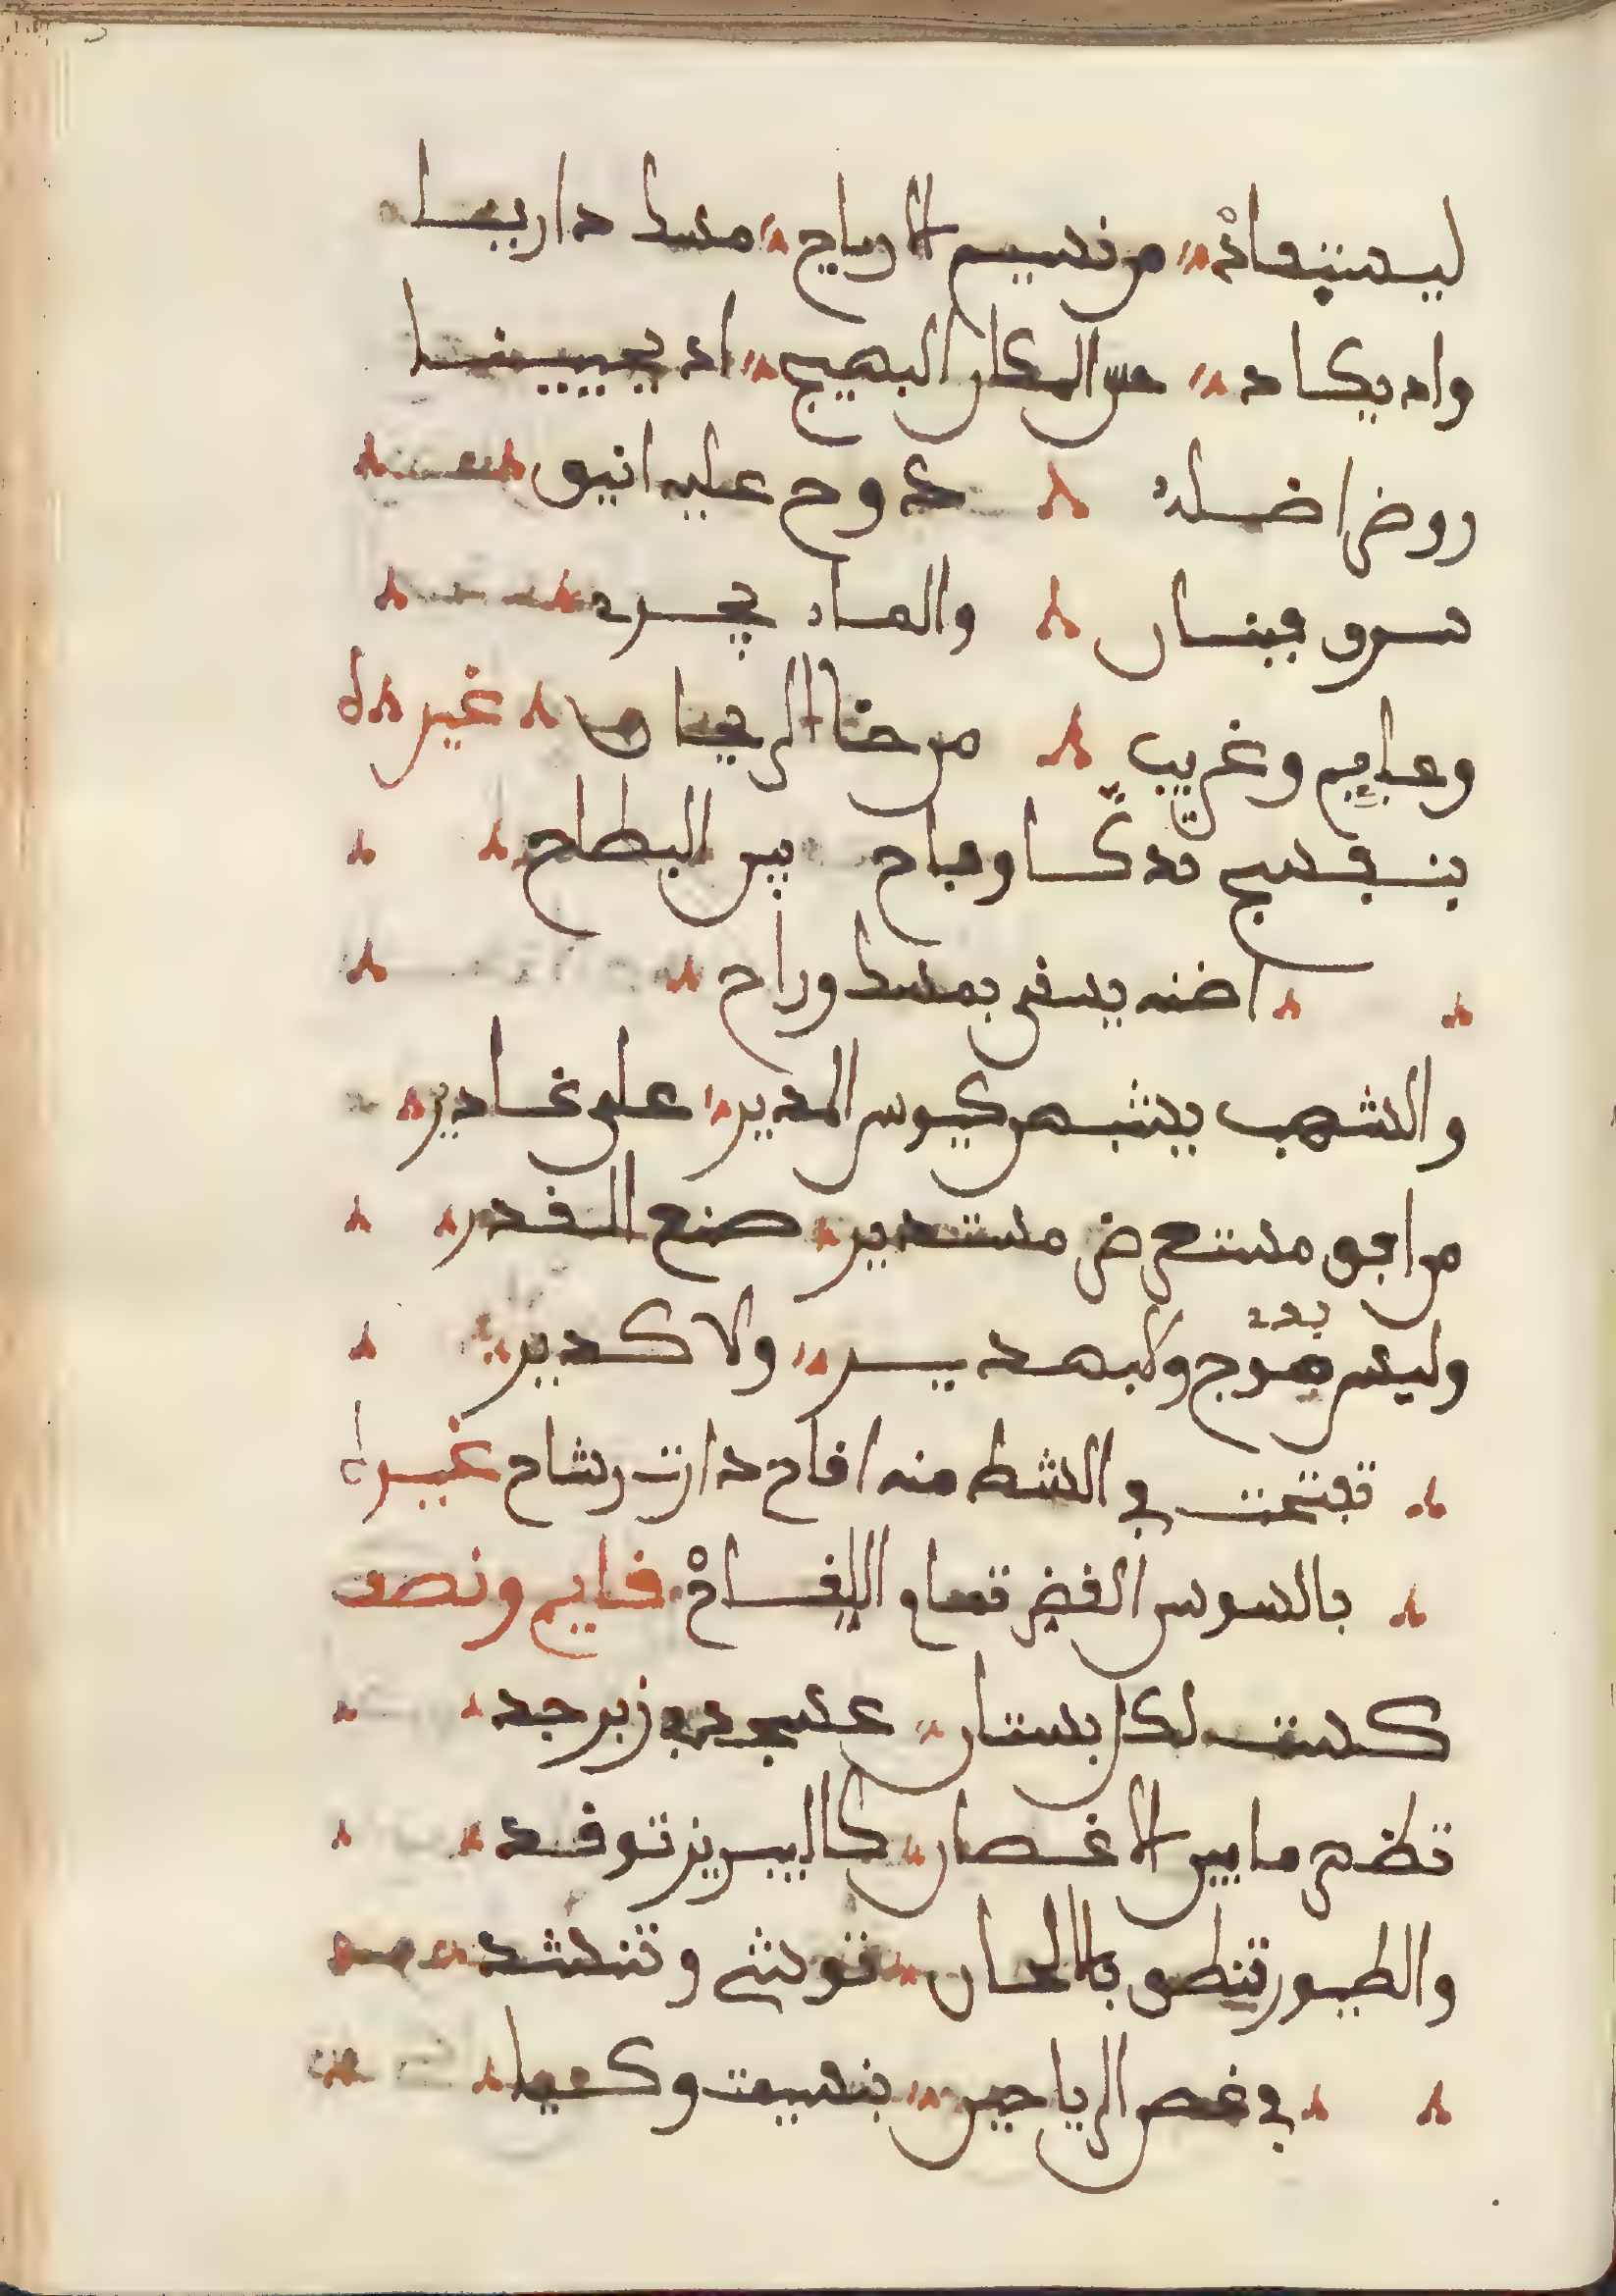 ليستنفاذ من نسيم الارياح مسك دارينا
واد يكاد حسن المكان البهيج اد يحيينا
روض اضله دوح عليه انيق
سرو فينان والماء يجرے
وعايم وغريق من جنا الريحان غيره
بنفسج ندكا وفاح بين البطاح
اضنه يسقى بمسك وراح
والشهب يشبهن كيوس المدير على غادير
من افق مستعرض مستدير صنع القدير
وليس بدء موج ولا بهدير ولا كدير
تفتحت في الشط منه اقاح دارت وشاح غيره
بالسوس الغض تمام اللقاح فايم ونصف
كست لكل بستان عسجد وزبرجد
تظهر ما بين الاغصان كاليبريز توقد
والطيور تنطق بالالحان توشي وتنشد
في غصن الرياحين بنسيت وكعيا